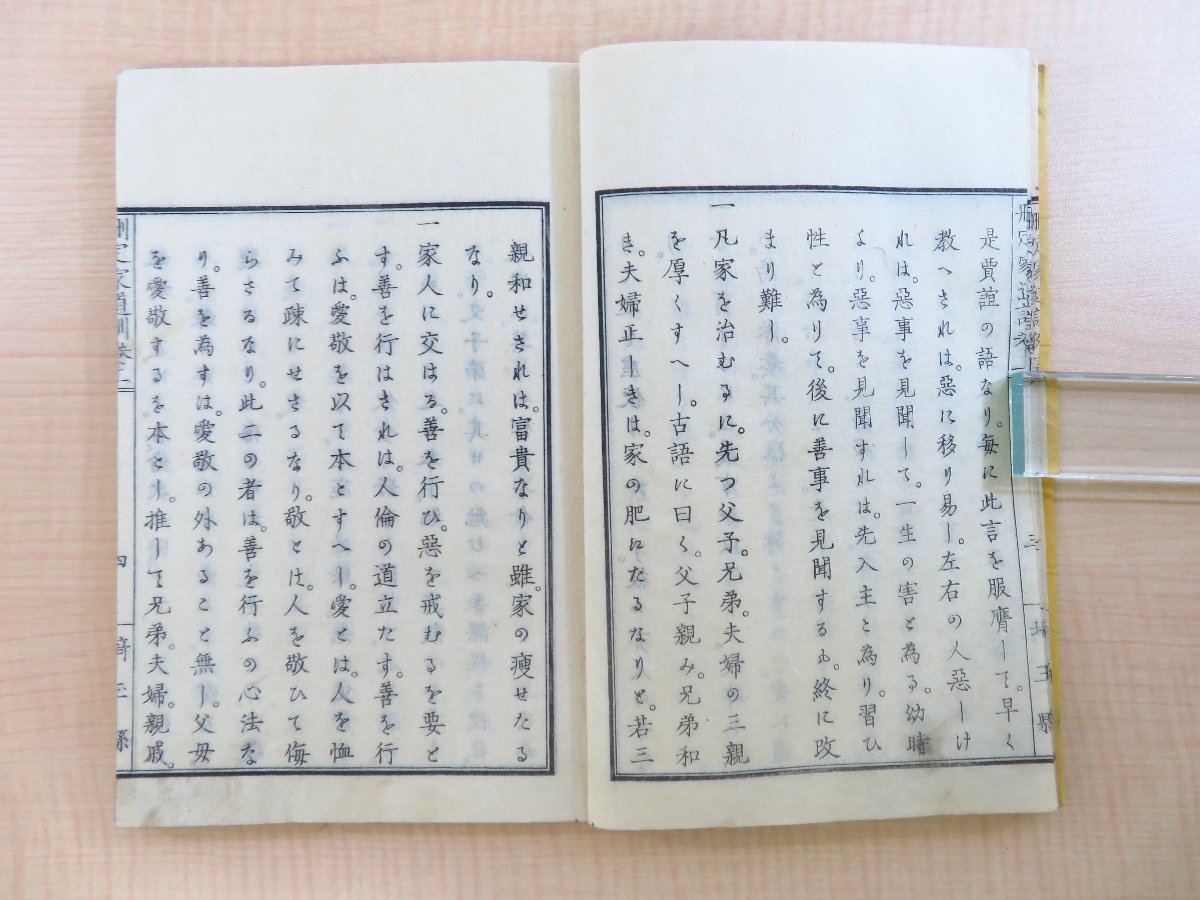 是賈誼の語なり。毎に此言を服膺して。早く
教へされは。惡に移り易し。左右の人惡しけ
れは。惡事を見聞して。一生の害と為る。幼時
より。惡事を見聞すれは。先入主と為り。習ひ
性と為りて。後に善事を見聞するも。終に改
まり難し。
一凡家を治むるに。先つ父子。兄弟。夫婦の三親
を厚くすへし。古語に曰く。父子親み。兄弟和
き。夫婦正しきは。家の肥にたるなりと。若三
三
埼玉縣
親和せされは。富貴なりと雖。家の瘦せたる
なり。
一家人に交はる。善を行ひ。惡を戒むるを要と
す。善を行はされは。人倫の道立たす。善を行
ふは。愛敬を以て本とすへし。愛とは。人を恤
みて疎にせさるなり。敬とは。人を敬ひて侮
らさるなり。此二の者は。善を行ふの心法な
り。善を為すは。愛敬の外あること無し。父母
を愛敬するを本とし。推して兄弟。夫婦。親戚。
刪定家道訓
四